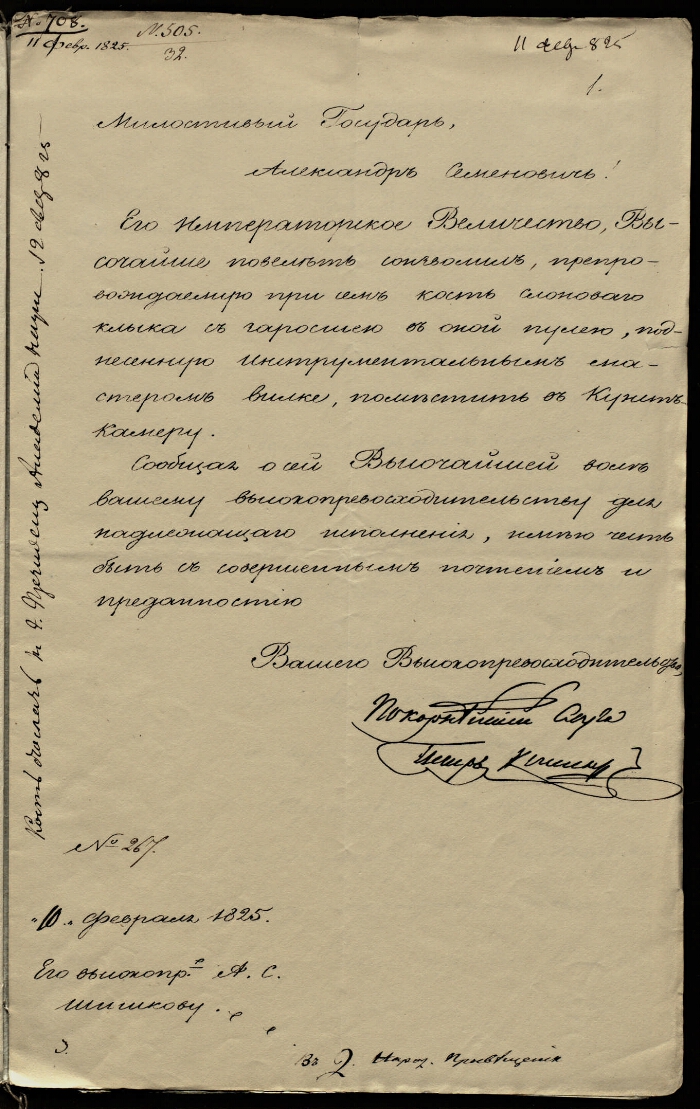 № 708.
11 февр. 1825.
N. 505.
32.
11 фев 825
1.
Милостивый Государь,
Александръ Семеновичь!
Его Императорское Величество, Вы-
сочайше повелѣть соизволилъ, препро-
вождаемую при семъ кость слоноваго
клыка съ заросшею въ оной пулею, под-
несенную инструментальнымъ ма-
стеромъ Вилке, помѣстить въ Кунстъ-
камеру.
Сообщая о сей Высочайшей волѣ
вашему высокопревосходительству для
надлежащаго исполненія, имѣю честь
быть съ совершеннымъ почтеніемъ и
преданностію
Вашего Высокопревосходительства,
Покорнѣйшій Слуга
Петръ
№ 267.
"10" февраля 1825.
Его высокопр. А. С.
Шишкову.
Въ Д. Народ. Просвѣщенія
Кость къ Г. Президенту Академіи Наукъ 12 фев 825